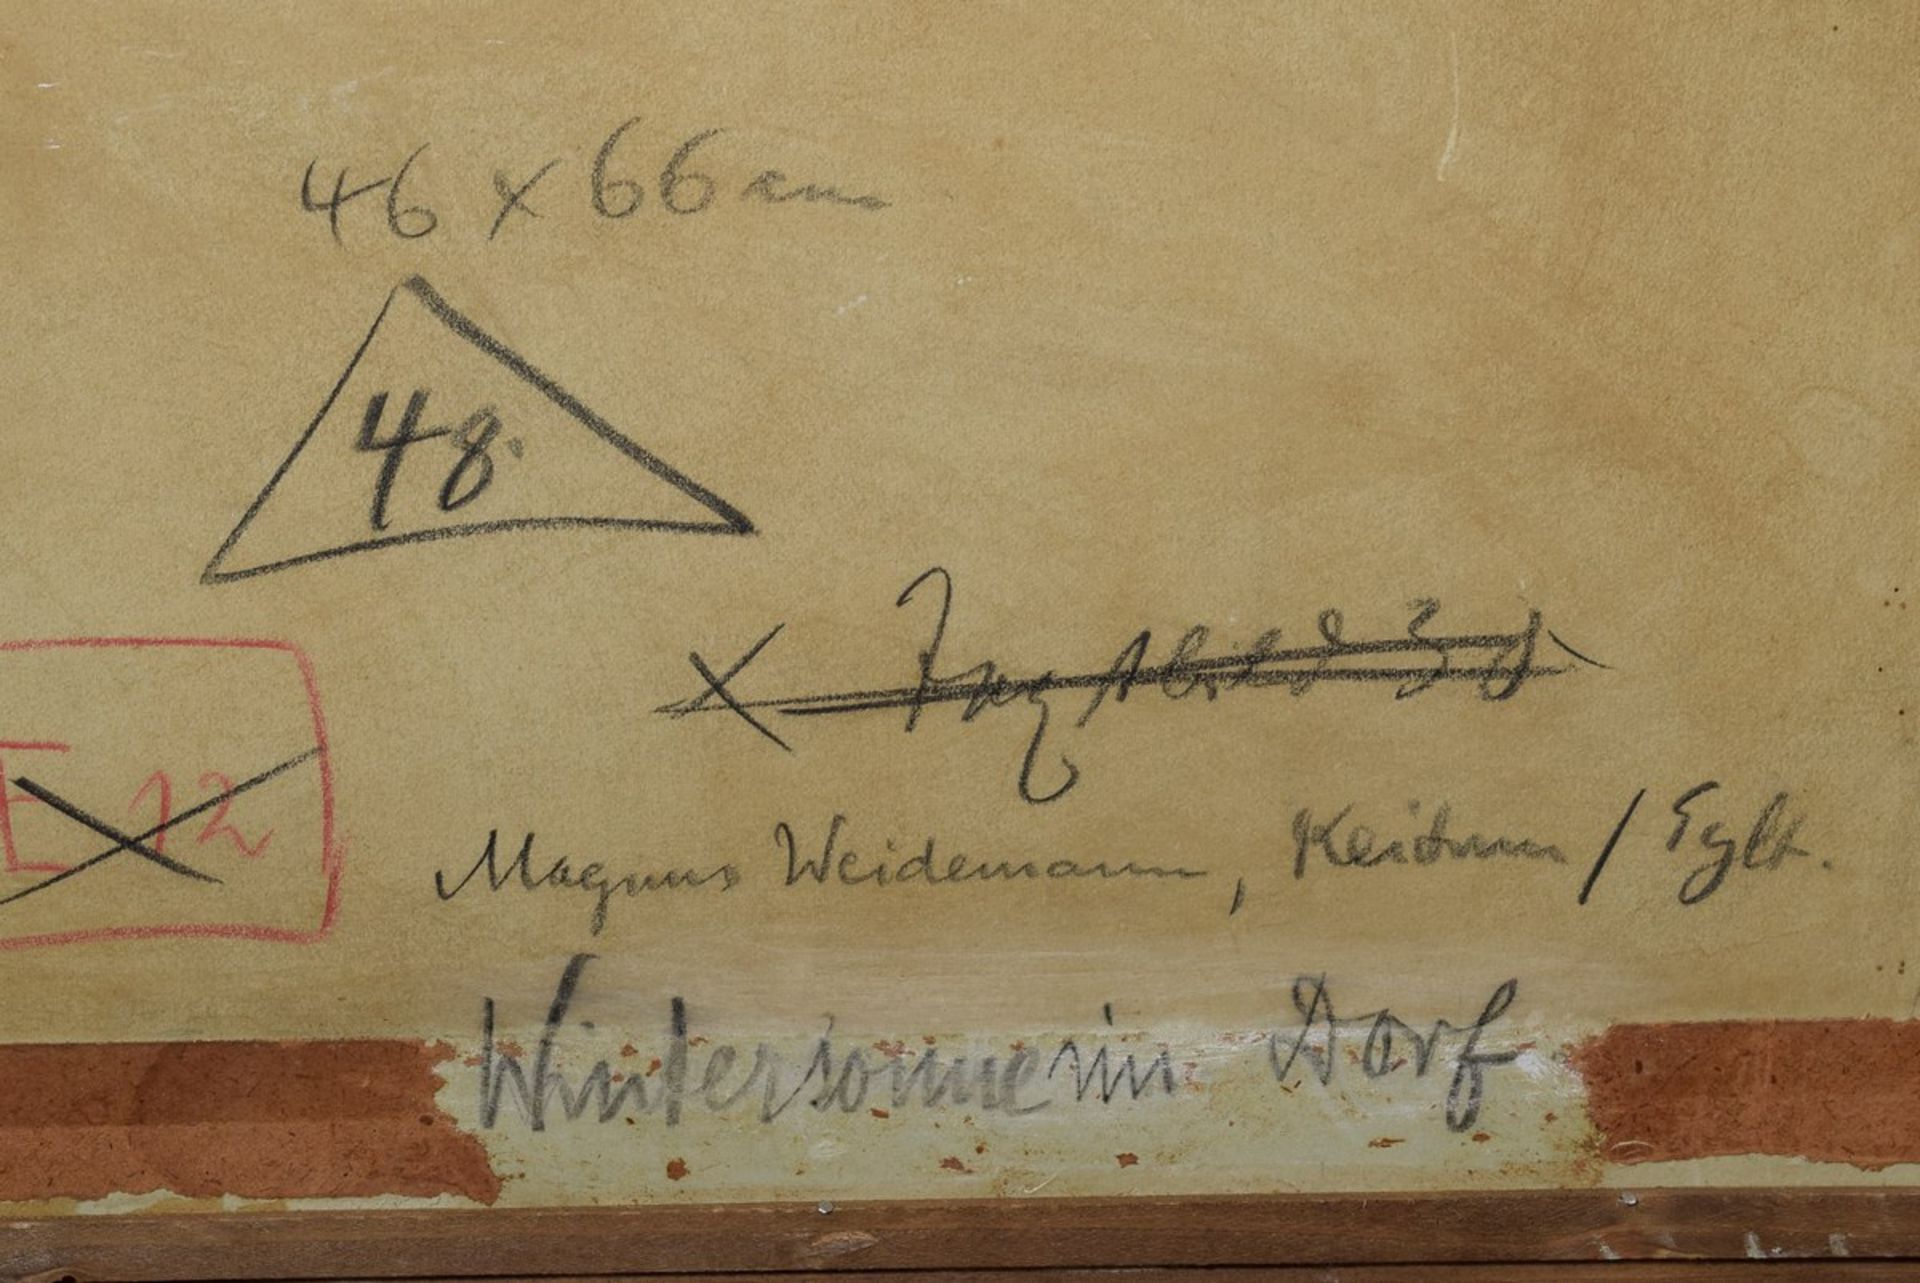 46 x 66 cm
48.
E 12
Magnus Weidemann, Keitum / Sylt.
Wintersonne im Dorf